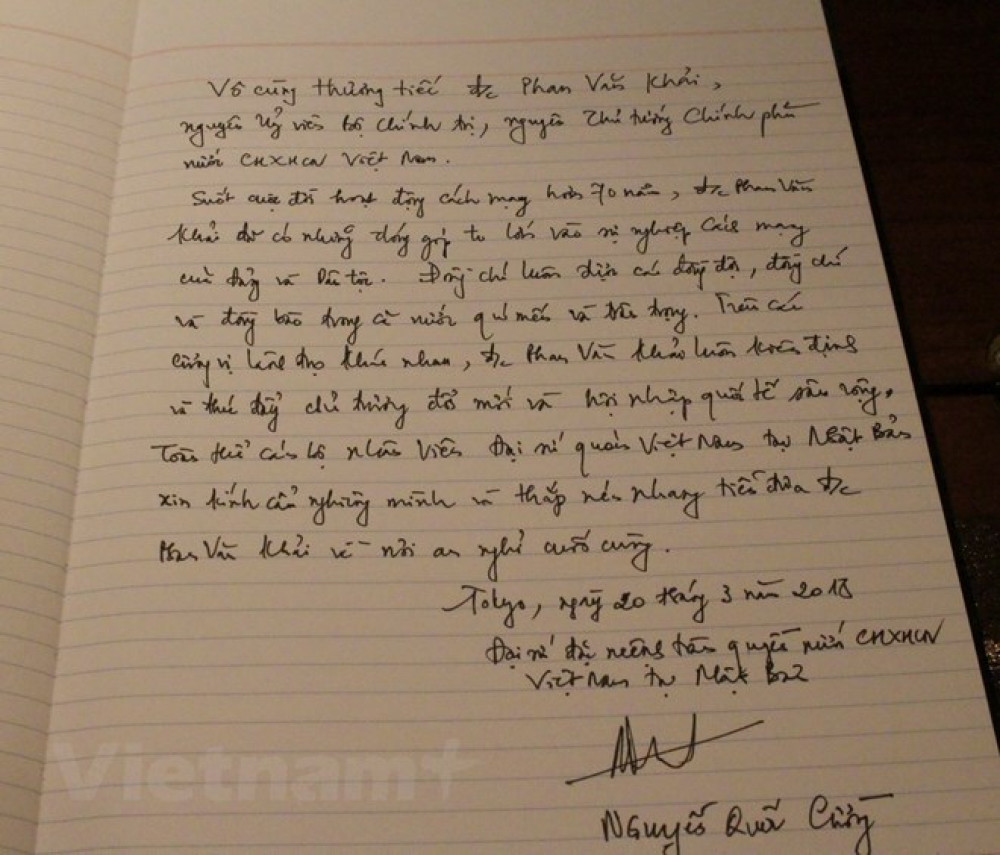 Vô cùng thương tiếc đ/c Phan Văn Khải,
nguyên Uỷ viên Bộ Chính trị, nguyên Thủ tướng Chính phủ
nước CHXHCN Việt Nam.
Suốt cuộc đời hoạt động cách mạng hơn 70 năm, đ/c Phan Văn
Khải đã có những đóng góp to lớn vào sự nghiệp Cách mạng
của Đảng và Dân tộc. Đồng chí luôn được các đồng đội, đồng chí
và đồng bào trong cả nước quí mến và trân trọng. Trên các
cương vị lãnh đạo khác nhau, đ/c Phan Văn Khải luôn kiên định
và thúc đẩy chủ trương đổi mới và hội nhập quốc tế sâu rộng.
Toàn thể cán bộ nhân viên Đại sứ quán Việt Nam tại Nhật Bản
xin kính cẩn nghiêng mình và thắp nén nhang tiễn đưa đ/c
Phan Văn Khải về nơi an nghỉ cuối cùng.
Tokyo, ngày 20 tháng 3 năm 2018
Đại sứ đặc mệnh toàn quyền nước CHXHCN
Việt Nam tại Nhật Bản
Nguyễn Quốc Cường
Vietnam+